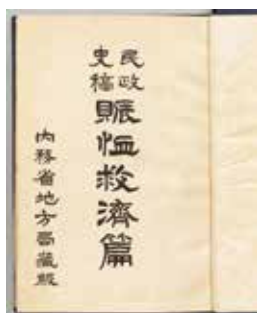 民政
史稿
賑恤救濟篇
內務省地方局藏版